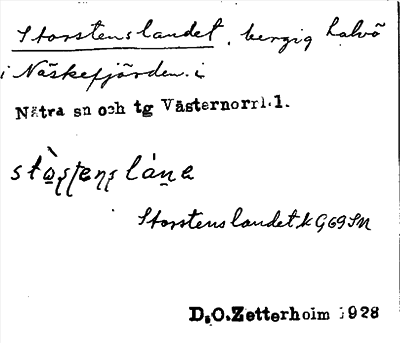 Storstenslandet, bergig halvö
i Näskefjärden. i
Nätra sn och tg Västernorrl.l.
stò̱ꞩʈenꞩ lán̠e
Storstenslandet k G69SM
D.O.Zetterholm 1928